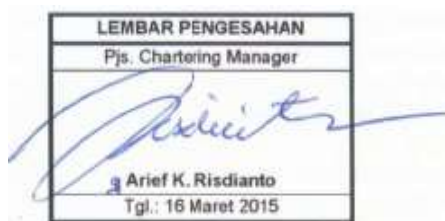 LEMBAR PENGESAHAN
Pjs. Chartering Manager
Arief K. Risdianto
Tgl.: 16 Maret 2015